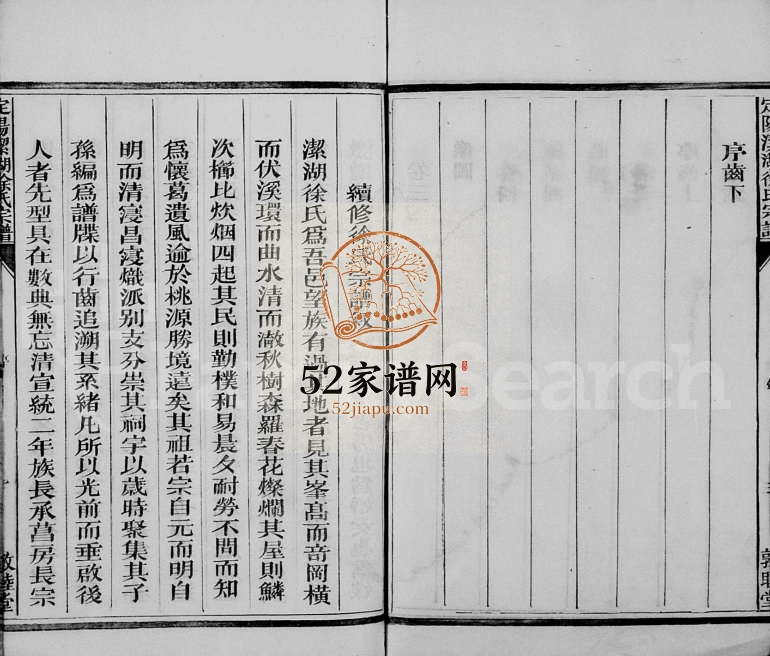 定陽潔湖徐氏宗譜
序齒下
敦睦堂
續修徐氏宗譜敘
潔湖徐氏爲吾邑望族有過其地者見其峯高而音岡橫
而伏溪環而曲水清而澈秋樹森羅春花燦爛其屋則鱗
次櫛比炊烟四起其民則勤樸和易晨夕耐勞不問而知
爲懷葛遺風逾於桃源勝境遠矣其祖若宗自元而明自
明而清寖昌寖熾派别支分崇其祠宇以歲時聚集其子
孫編爲譜牒以行齒追溯其系緒凡所以光前而垂啟後
人者先型具在數典無忘清宣統二年族長承菖房長宗
定陽潔湖徐氏宗譜
敦睦堂
52家谱网
52jiapu.com
Search